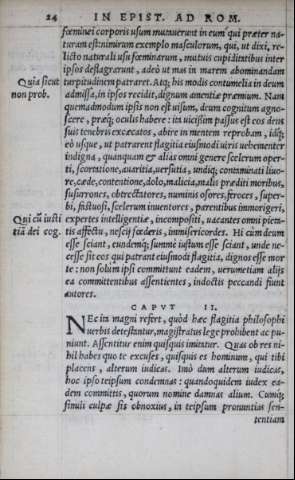 24 IN EPIST. AD ROM.
fœminei corporis usum mutauerunt in eum qui præter na-
turam est: nimirum exemplo masculorum, qui, ut dixi, re-
licto naturali usu fœminarum, mutuis cupiditatibus inter
ipsos deflagrarunt, adeò ut mas in marem abominandam
Quia sicut turpitudinem patraret. Atq; his modis contumelia in deum
non prob. admissa, in ipsos recidit, dignum amentiæ præmium. Nam
quemadmodum ipsis non est uisum, deum cognitum agno-
scere, præq; oculis habere: ita uicissim passus est eos deus
suis tenebris excæcatos, abire in mentem reprobam, idq;
eò usque, ut patrarent flagitia eiusmodi uiris uehementer
indigna, quanquam & alias omni genere scelerum oper-
ti, scortatione, auaritia, uersutia, undiq; contaminati liuo-
re, cæde, contentione, dolo, malicia, malis præditi moribus,
susurrones, obtrectatores, numinis osores, feroces, super-
bi, fastuosi, scelerum inuentores, parentibus immorigeri,
Qui cū iusti expertes intelligentiæ, incompositi, uacantes omni pieta-
tiā dei cog. tis affectu, nescij fœderis, immisericordes. Hi cùm deum
esse sciant, eundemq; summè iustum esse sciant, unde ne-
cesse sit eos qui patrant eiusmodi flagitia, dignos esse mor
te: non solùm ipsi committunt eadem, uerumetiam alijs
ea committentibus assentientes, indoctis peccandi fiunt
autores.
CAPVT II.
NEc ita magni refert, quòd hæc flagitia philosophi
uerbis detestantur, magistratus lege prohibent ac pu-
niunt. Assentitur enim quisquis imitatur. Quas ob res ni-
hil habes quo te excuses, quisquis es hominum, qui tibi
placens, alterum iudicas. Imò dum alterum iudicas,
hoc ipso teipsum condemnas: quandoquidem iudex ea-
dem committis, quorum nomine damnas alium. Cumq;
simili culpæ sis obnoxius, in teipsum pronuntias sen-
tentiam